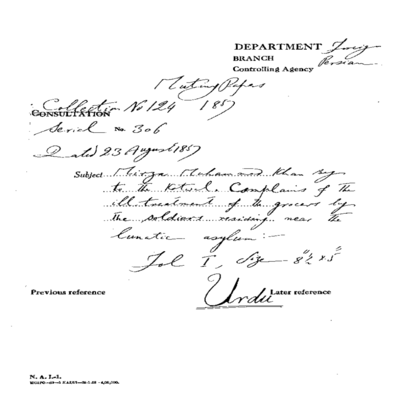 DEPARTMENT Foreign
BRANCH Persian
Controlling Agency
Mutiny Papers
Collection No 124 1857
CONSULTATION
Serial No. 306
Dated 23 August 1857
Subject Mirza Mohammad Khan
to the Kotwal. Complains of the
ill treatment of the grocers by
the soldiers residing near the
lunatic asylum :-
Fol I, Size 8½" x 5"
Urdu
Previous reference Later reference
N. A. I.-1.